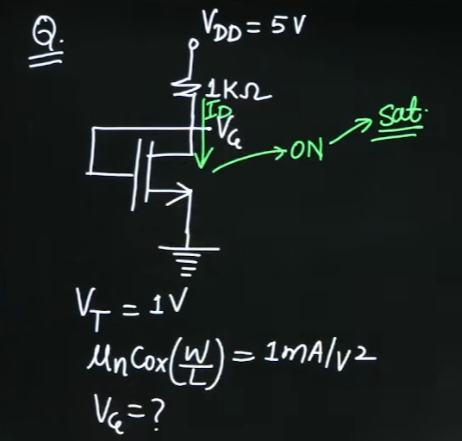 Q.
V_DD = 5V
1KΩ
I_D
V_G
ON
Sat.
V_T = 1V
μnCox(W/L) = 1mA/V2
V_G = ?